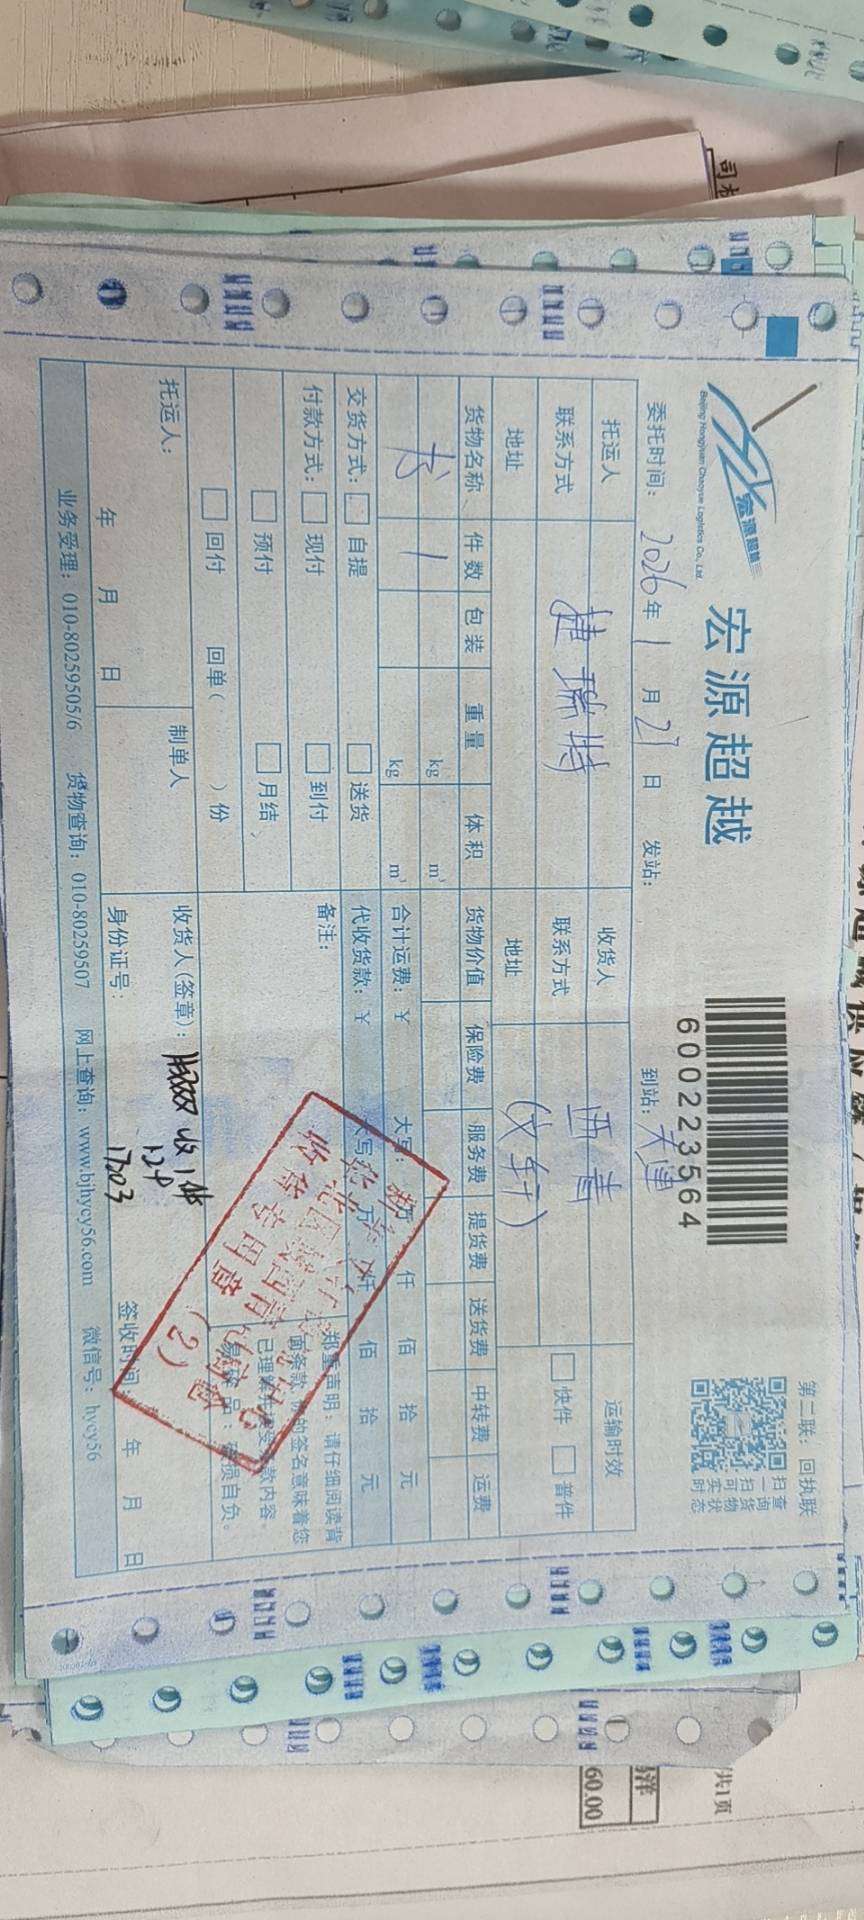 宏源超越
Beijing Hongyuan Chaoyue Logistics Co., Ltd.
宏源超越
600223564
第二联：回执联
扫一扫可实时
查询货物状态
委托时间：2026年1月27日 发站： 到站：天津
托运人 捷瑞特 收货人 西青 运输时效
联系方式 联系方式 快件 普件
地址 地址 (文轩)
货物名称 件数 包装 重量 体积 货物价值 保险费 服务费 提货费 送货费 中转费 运费
书 1 kg m³
kg m³ 合计运费：￥ 大写： 万 仟 佰 拾 元
交货方式： 自提 送货 代收货款：￥ 大写 万 仟 佰 拾 元
付款方式： 现付 到付 备注： 郑重声明：请仔细阅读背
面条款，您的签名意味着您
预付 月结 已理解并接受条款内容。
回付 回单( )份 易碎品：破损自负。
托运人： 制单人 收货人(签章)： 收1件
1.29
17203
年 月 日 身份证号： 签收时间： 年 月 日
收货专用章
(2)
业务受理：010-80259505/6 货物查询：010-80259507 网上查询：www.bjhycy56.com 微信号：hycy56
共1页
60.00